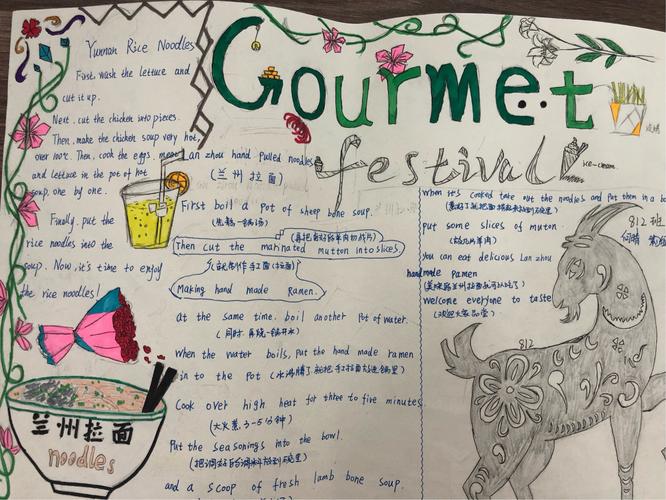 Gourmet
festival
ice-cream
Yunnan Rice Noodles
First, wash the lettuce and
cut it up.
Next, cut the chicken into pieces.
Then, make the chicken soup very hot,
over 100℃. Then, cook the eggs, meat
and lettuce in the pot of hot
soup, one by one.
Finally, put the
rice noodles into the
soup. Now, it's time to enjoy
the rice noodles!
兰州拉面
noodles
Lan zhou hand pulled noodles
(兰州拉面)
First boil a pot of sheep bone soup.
Then cut the marinated mutton into slices
Making hand made Ramen.
At the same time, boil another pot of water.
(同时,再烧一锅开水)
When the water boils, put the hand made ramen
in to the pot
Cook over high heat for three to five minutes
(大火煮3-5分钟)
Put the seasonings into the bowl.
and a scoop of fresh lamb bone soup.
When it's cooked take out the noodles and put them in a bo
put some slices of muton.
you can eat delicious Lan zhou
handmade ramen
Welcome everyone to taste
(欢迎大家品尝)
812班
812